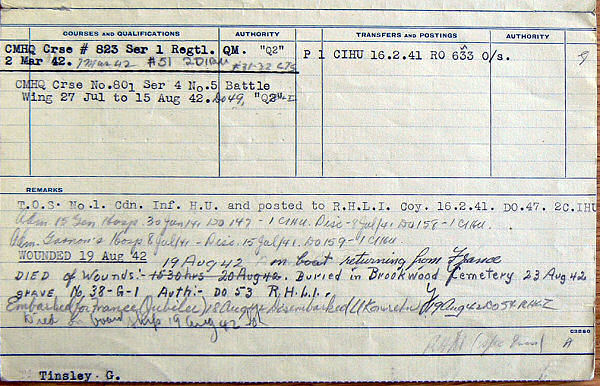 COURSES AND QUALIFICATIONS AUTHORITY TRANSFERS AND POSTINGS AUTHORITY
CMHQ Crse # 823 Ser 1 Regtl. QM. "Q2" P 1 CIHU 16.2.41 RO 633 O/s.
2 Mar 42. 7 Mar 42 #51 #31-32
CMHQ Crse No.801 Ser 4 No.5 Battle
Wing 27 Jul to 15 Aug 42. Do49,
REMARKS
T.O.S. No.1. Cdn. Inf. H.U. and posted to R.H.L.I. Coy. 16.2.41. DO.47. 2C.IHU
Adm. 15 Gen Hosp. 30 Jun/41 DO 147 - 1 CIHU. Disc - 8 Jul/41 DO 158 - 1 CIHU.
Adm. Hosp 8 Jul/41 - Disc. 15 Jul/41. DO 159 - 1 CIHU
WOUNDED 19 Aug 42 19 Aug 42 on boat returning from France
DIED of Wounds:- 1530 hrs 20 Aug 42. Buried in Brookwood Cemetery 23 Aug 42
GRAVE No. 38-G-1 Auth:- DO 53 R.H.L.I.
Embarked for France (Jubilee) 18 Aug/42 Disembarked 19 Aug 42 DO 54 RHLI
Died on board ship 19 Aug 42
Tinsley G.